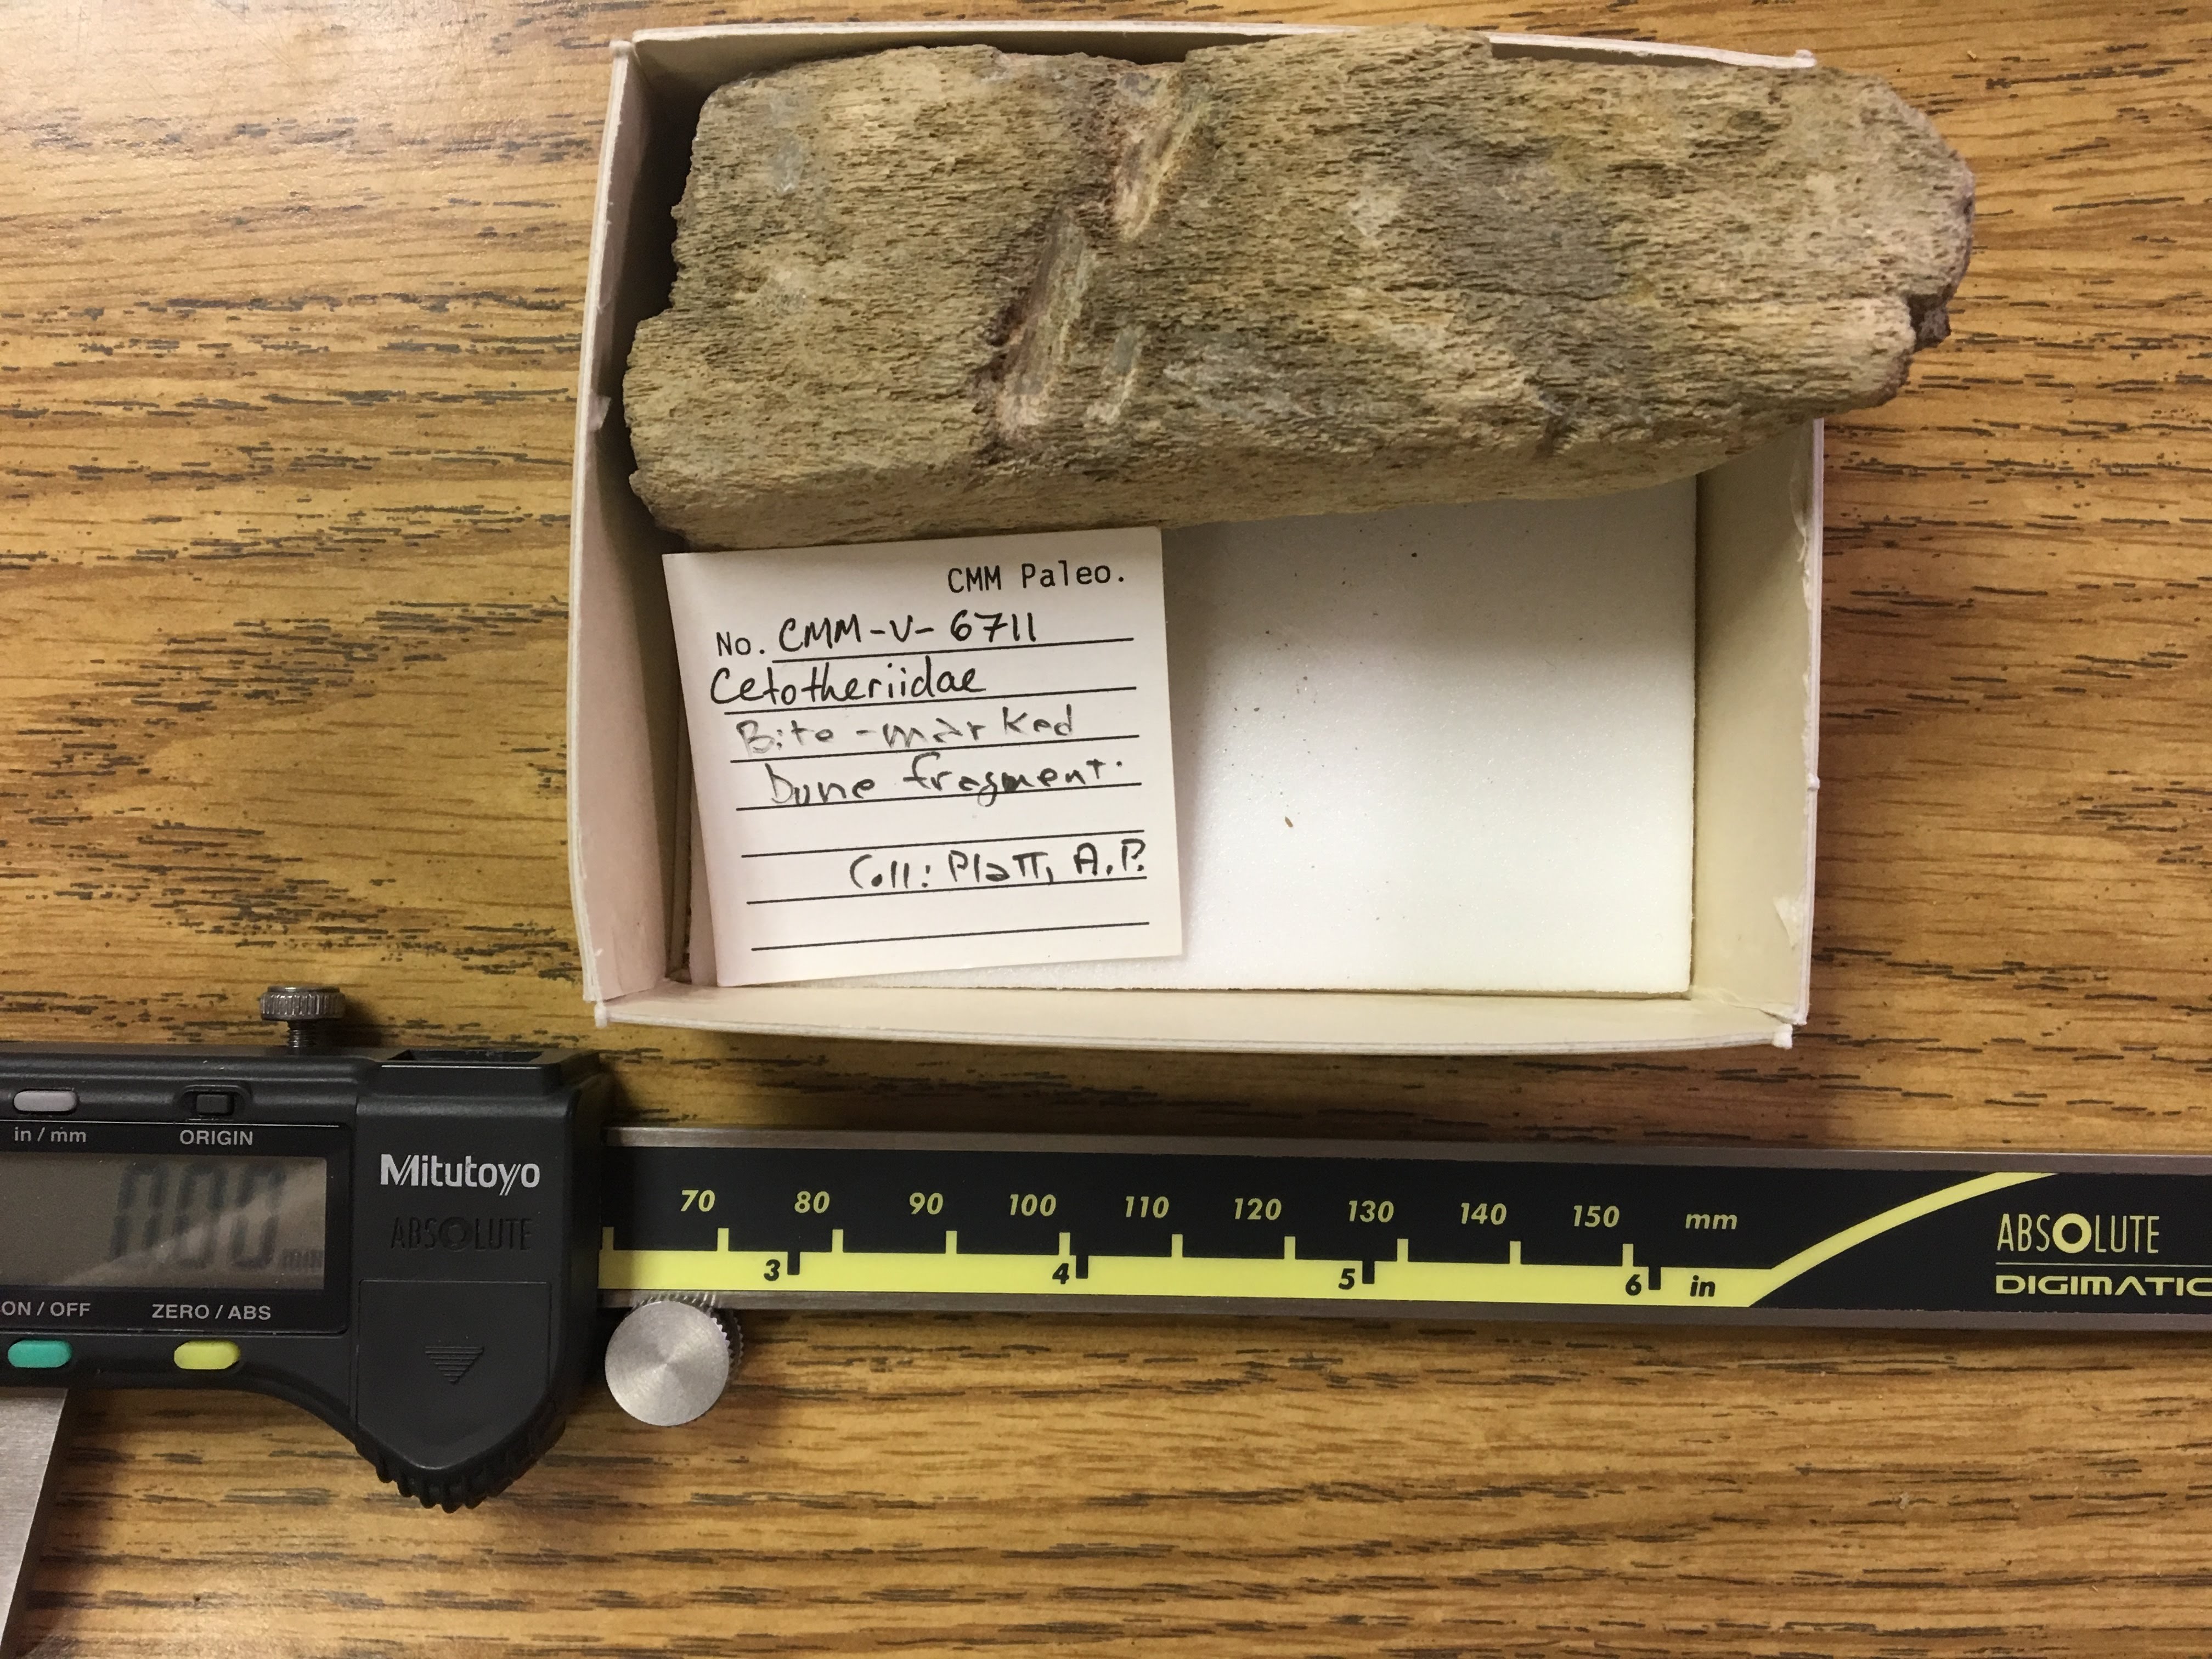 CMM Paleo.
No. CMM-V-6711
Cetotheriidae
Bite-marked
bone fragment.
Coll: Platt, A.P.
in / mm ORIGIN
Mitutoyo
ABSOLUTE
0.00 mm
ON / OFF ZERO / ABS
70 80 90 100 110 120 130 140 150 mm
3 4 5 6 in
ABSOLUTE
DIGIMATIC